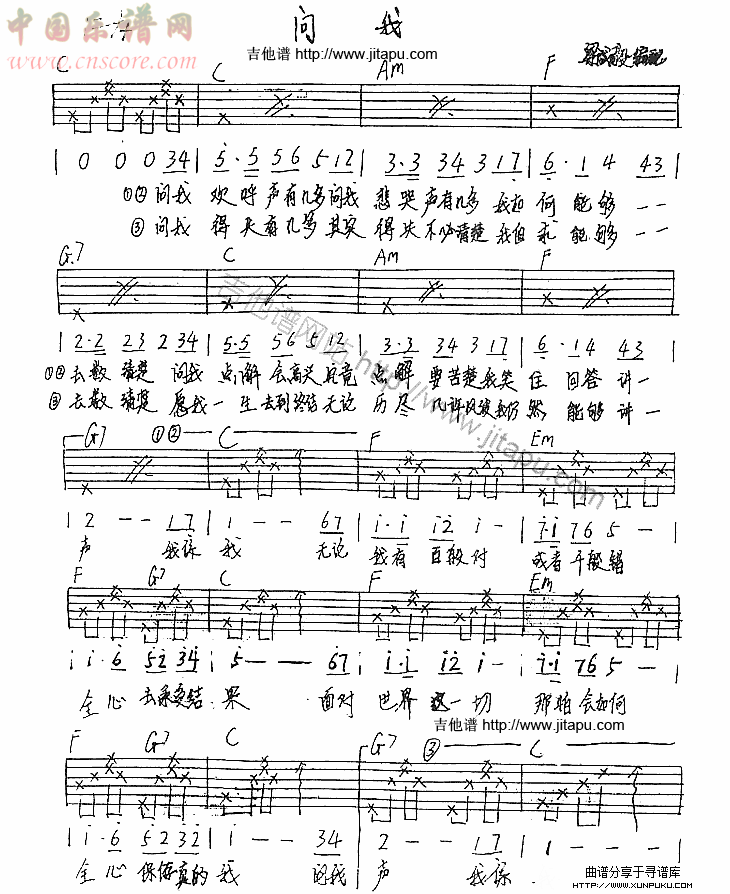 中国乐谱网
www.cnscore.com
问 我
吉他谱 http://www.jitapu.com
C C Am F
| 0 0 0 34 | 5·5 56 5 12 | 3·3 34 3 17 | 6·1 4 43 |
①② 问我 欢呼声有几多问我 悲哭声有几多 我如何能够 --
③ 问我 得失有几多 其实 得失不必清楚 我但求能够 --
G7 C Am F
| 2·2 23 2 34 | 5·5 56 5 12 | 3·3 34 3 17 | 6·1 4 43 |
①② 去数清楚 问我 点解会高兴究竟 点解要苦楚我笑住 回答讲一
③ 去数清楚 愿我一生去到终结无论 历尽几许风波我仍然能够讲一
吉他谱网站 http://www.jitapu.com
G7 ①② C F Em
| 2 - - 17 | 1 - - 67 | i·i i2 i - | 7·i 76 5 - |
声 我系我 无论 我有百般对 或者千般错
F G7 C F Em
i·6 52 34 | 5 - - 67 | i·i i2 i - | 7·i 76 5 - |
全心去承受结果 面对世界这一切 那怕会如何
吉他谱 http://www.jitapu.com
F G7 C G7 ③ C
| i·6 52 32 | i - - 34 | 2 - - 17 | 1 - - |
全心保存真的我 问我 声 我系
曲谱分享于寻谱库
WWW.XUNPUKU.COM